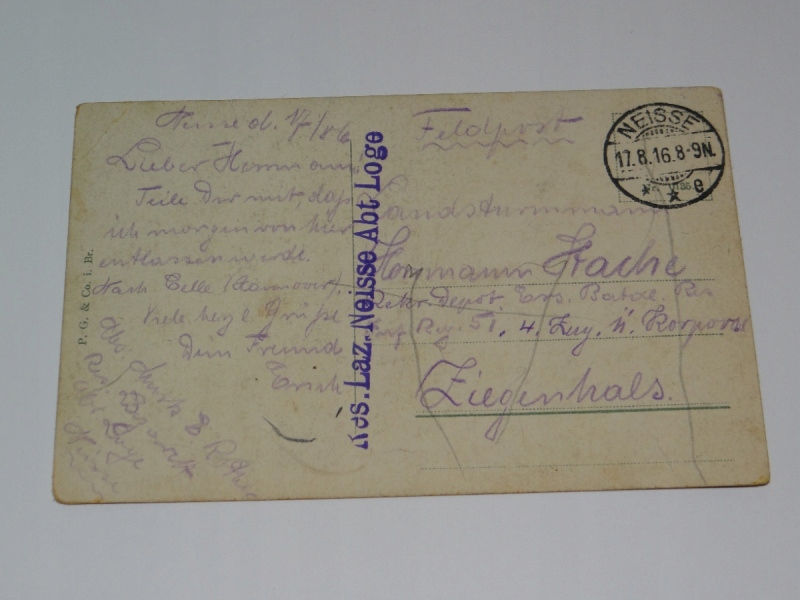 Neisse d. 17/8 16
Lieber Hermann
Teile Dir mit, das
ich morgen von hier
entlassen werde.
Nach Celle (Hannover).
Viele herzl. Grüße
Dein Freund
Erich
Abs. Musk. E
Res. Lazarett
Abt Loge
Neisse
P. G. & Co. i. Br.
Res. Laz. Neisse Abt Loge
Feldpost
NEISSE
17.8.16.8-9N.
* * e
Landsturmmann
Hermann Hache
Rekr. Depot, Ers. Batde. Res
Inf Reg. 51, 4. Zug, 11. Korporal
Ziegenhals.